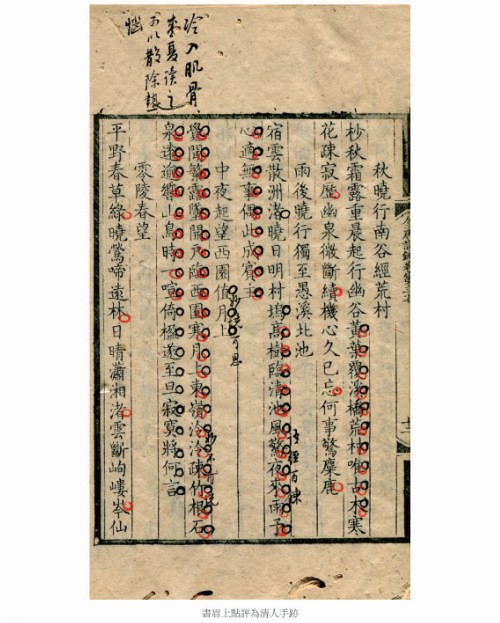 冷入肌骨
來夏讀之
可以散除熱
惱
秋曉行南谷經荒村
杪秋霜露重晨起行幽谷黃葉覆溪橋荒村唯古木寒
花疎寂歷幽泉微斷續機心久已忘何事驚麋鹿
雨後曉行獨至愚溪北池
宿雲散洲渚曉日明村塢高樹臨清池風驚夜來雨予
心適無事偶此成賓主
中夜起望西園值月上
覺聞繁露墜開戶臨西園寒月上東嶺泠泠疎竹根石
泉遠逾響山鳥時一喧倚楹遂至旦寂寞將何言
零陵春望
平野春草綠曉鶯啼遠林日晴瀟湘渚雲斷岣嶁岑仙
百鍊
書眉上點評為清人手跡